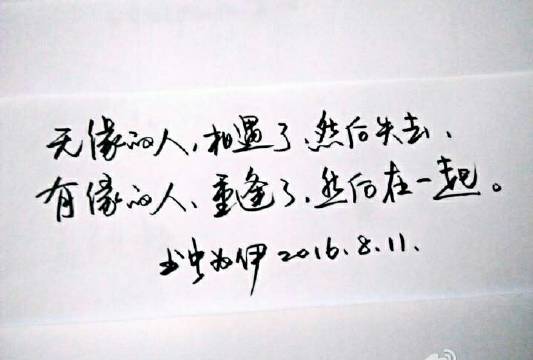 无缘的人,相遇了、然后失去、
有缘的人、重逢了、然后在一起。
书虫为伊 2016.8.11.